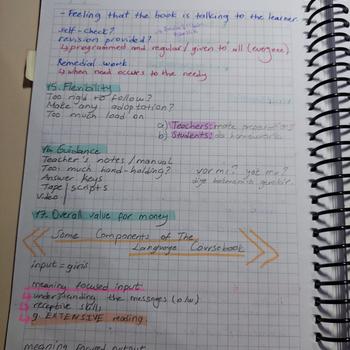 - Feeling that the book is talking to the learner.
self-check?
revision provided?
↳ programmed and regular / given to all (everyone)
Remedial work
↳ when need occurs to the needy
15. Flexibility
Too rigid to follow?
Make any adoptation?
Too much load on
a) Teachers: mate preparation
b) Students: do homeworks
16. Guidance
Teacher's notes / manual
Too much hand-holding?
var mı? yok mu?
Answer keys
diye bakmamız gerekir.
Tape scripts
Video
17. Overall value for money
Some Components of The
Language Coursebook
input = giriş
meaning focused input
understanding the messages
receptive skills
g. EXTENSIVE reading
meaning focused output